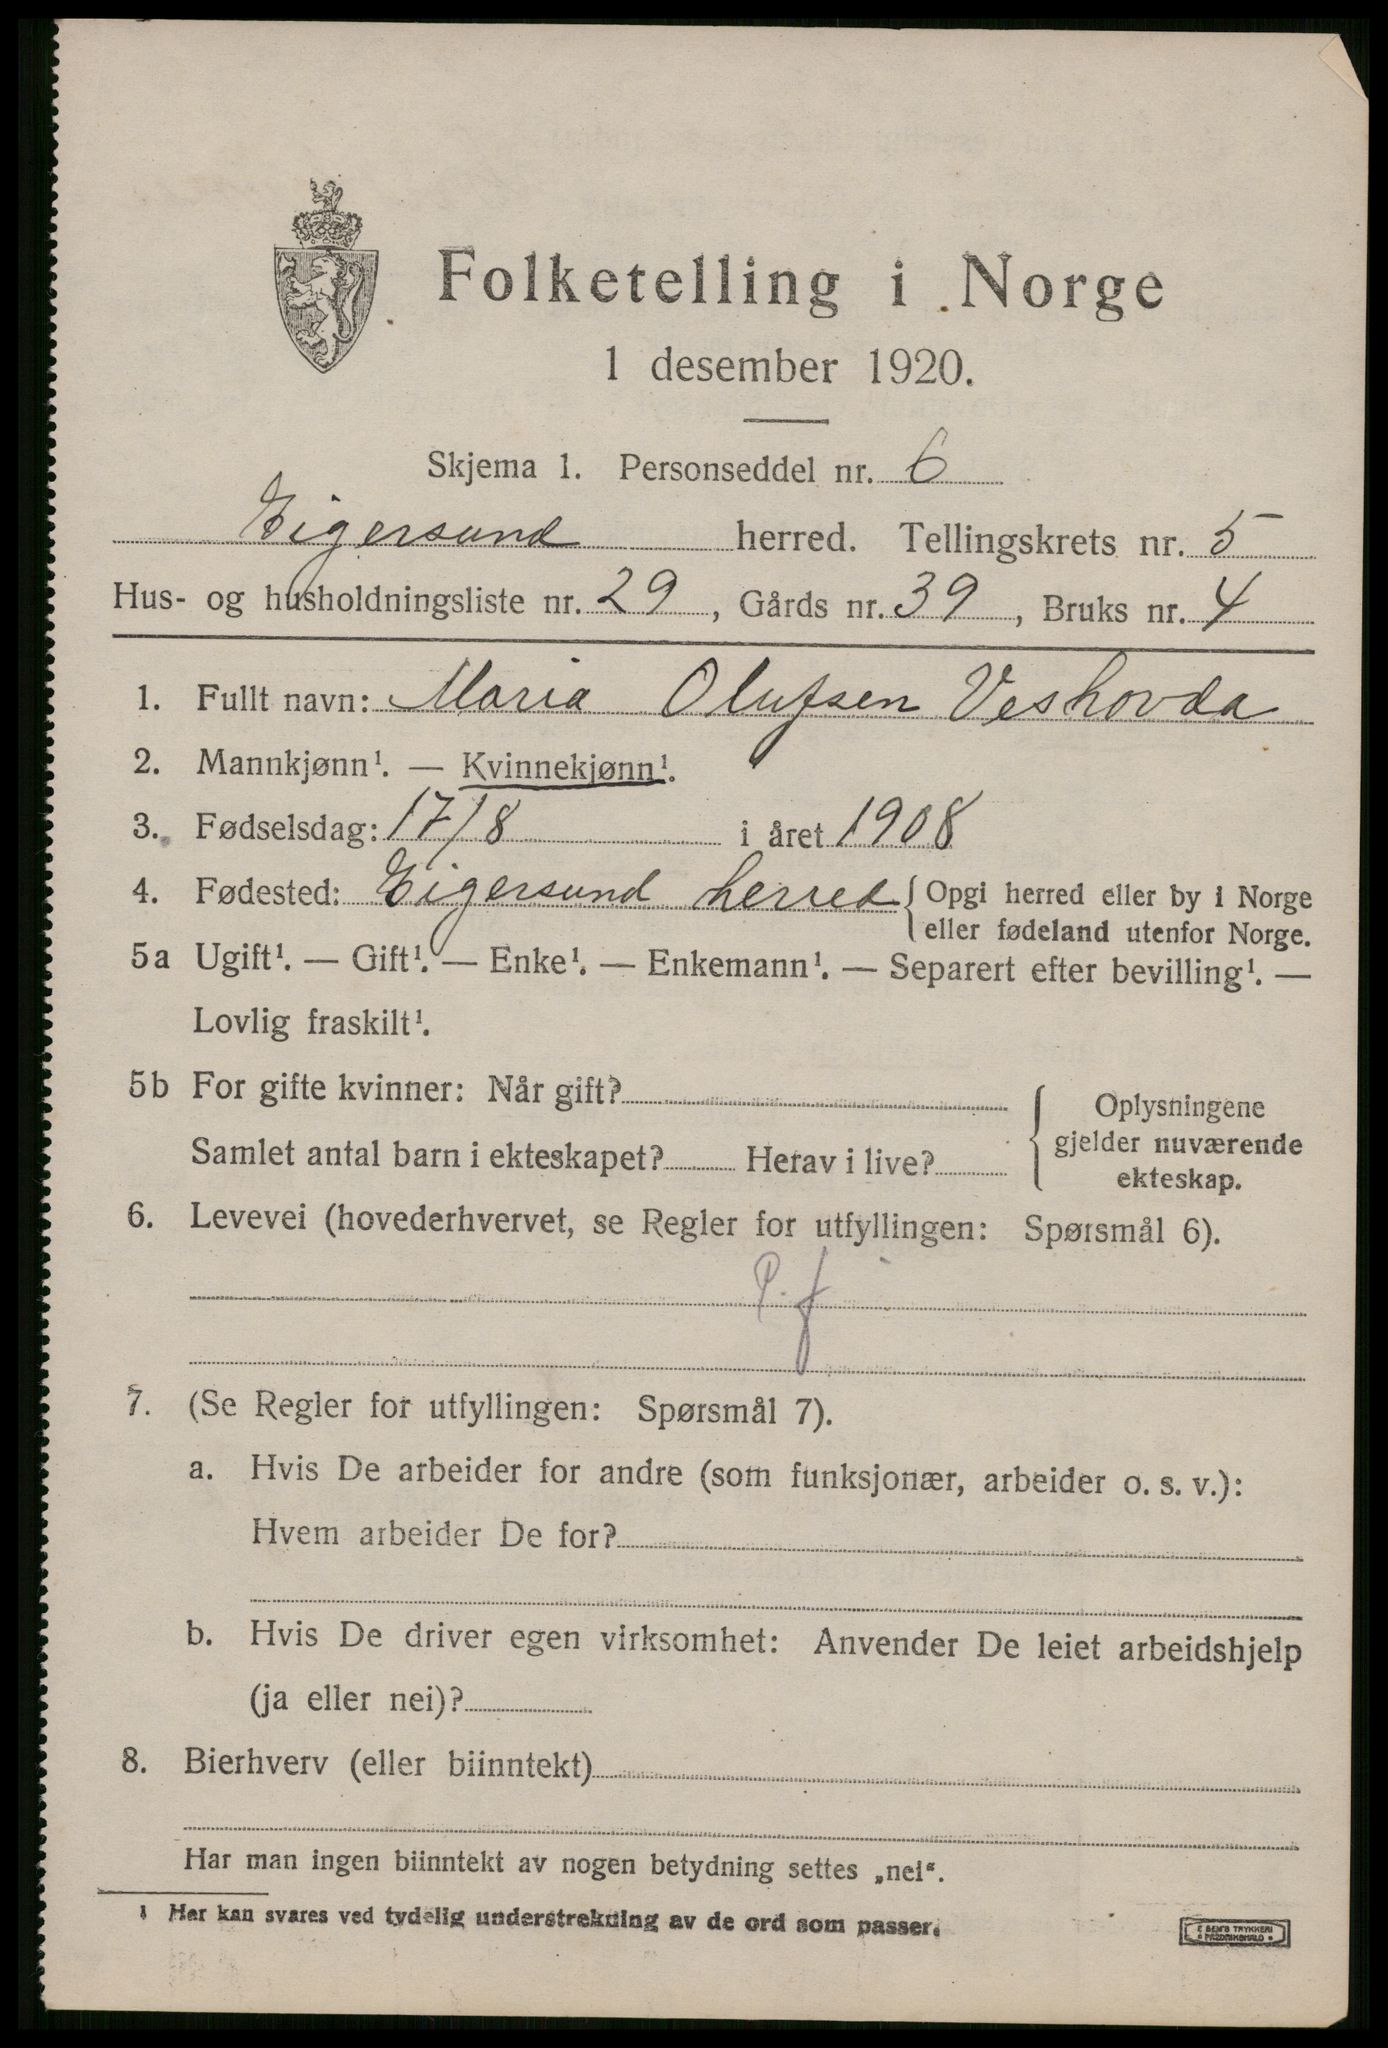 Folketelling i Norge
1 desember 1920.
Skjema 1. Personseddel nr. 6
Eigersund herred. Tellingskrets nr. 5
Hus- og husholdningsliste nr. 29, Gårds nr. 39, Bruks nr. 4
1. Fullt navn: Maria Olufsen Veshovda
2. Mannkjønn¹. — Kvinnekjønn¹.
3. Fødselsdag: 17/8 i året 1908
4. Fødested: Eigersund herred { Opgi herred eller by i Norge
eller fødeland utenfor Norge.
5a Ugift¹. — Gift¹. — Enke¹. — Enkemann¹. — Separert efter bevilling¹. —
Lovlig fraskilt¹.
5b For gifte kvinner: Når gift?
Samlet antal barn i ekteskapet? Herav i live?
{ Oplysningene
gjelder nuværende
ekteskap.
6. Levevei (hovederhvervet, se Regler for utfyllingen: Spørsmål 6).
P. f
7. (Se Regler for utfyllingen: Spørsmål 7).
a. Hvis De arbeider for andre (som funksjonær, arbeider o. s. v.):
Hvem arbeider De for?
b. Hvis De driver egen virksomhet: Anvender De leiet arbeidshjelp
(ja eller nei)?
8. Bierhverv (eller biinntekt)
Har man ingen biinntekt av nogen betydning settes „nei“.
1 Her kan svares ved tydelig understrekning av de ord som passer.
TRYKKERI
FREDRIKSHALD